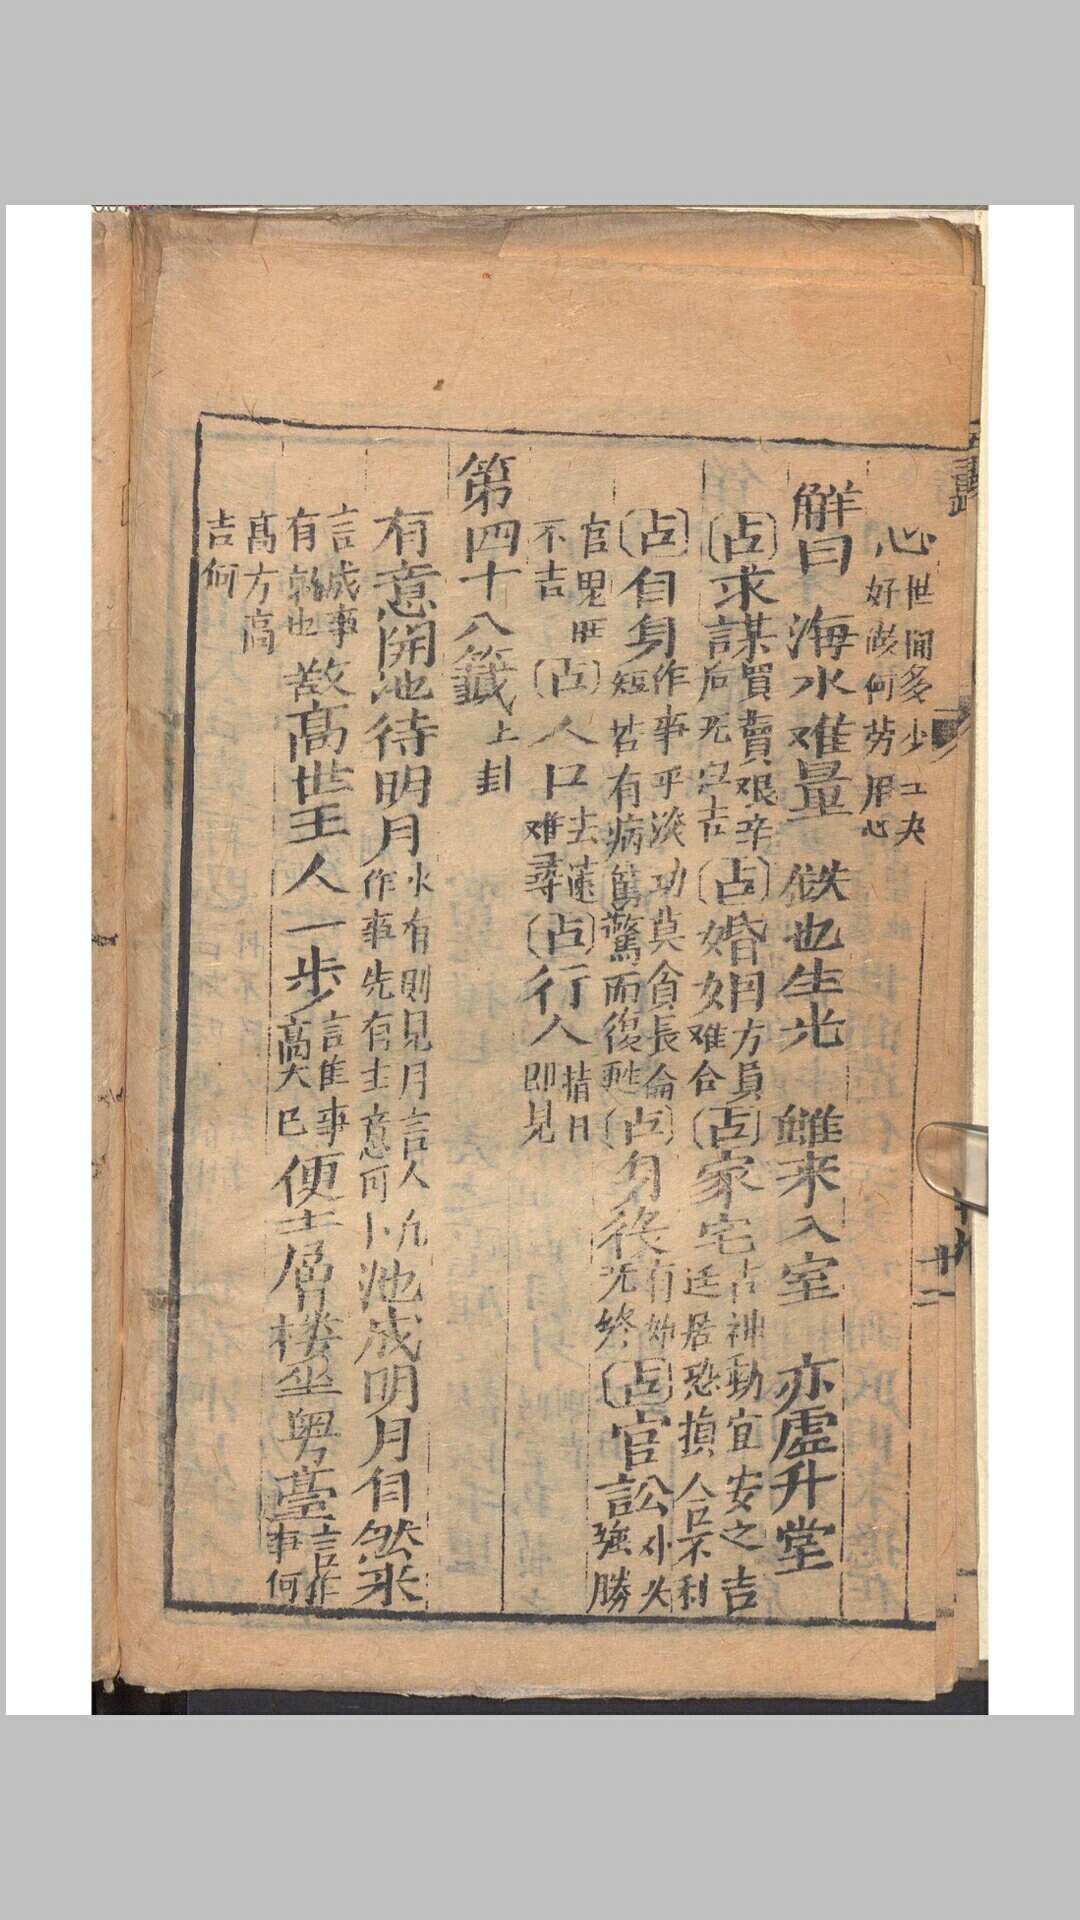 心世間多少工夫好做何劳用心
解曰 海水难量 铁也生光 雖來入室 亦虛升堂
占求謀買賣艰辛 占婚姻方員难合 占家宅古神動宜安之吉迁居恐損人口不利
占自身作事乎淡功莫貪長短若有病篤驚而復甦 占身後有始无終 占官訟外头強勝
官鬼旺不吉 占人口去遠难尋 占行人指日即見
第四十八籤 上卦
有意開池待明月水有則見月言人凢作事先有主意可卜池成明月自然来
言成事有兆也故高世主人一步高言惟事莫巳便上層楼坐粤臺言作事何
高方高
吉何